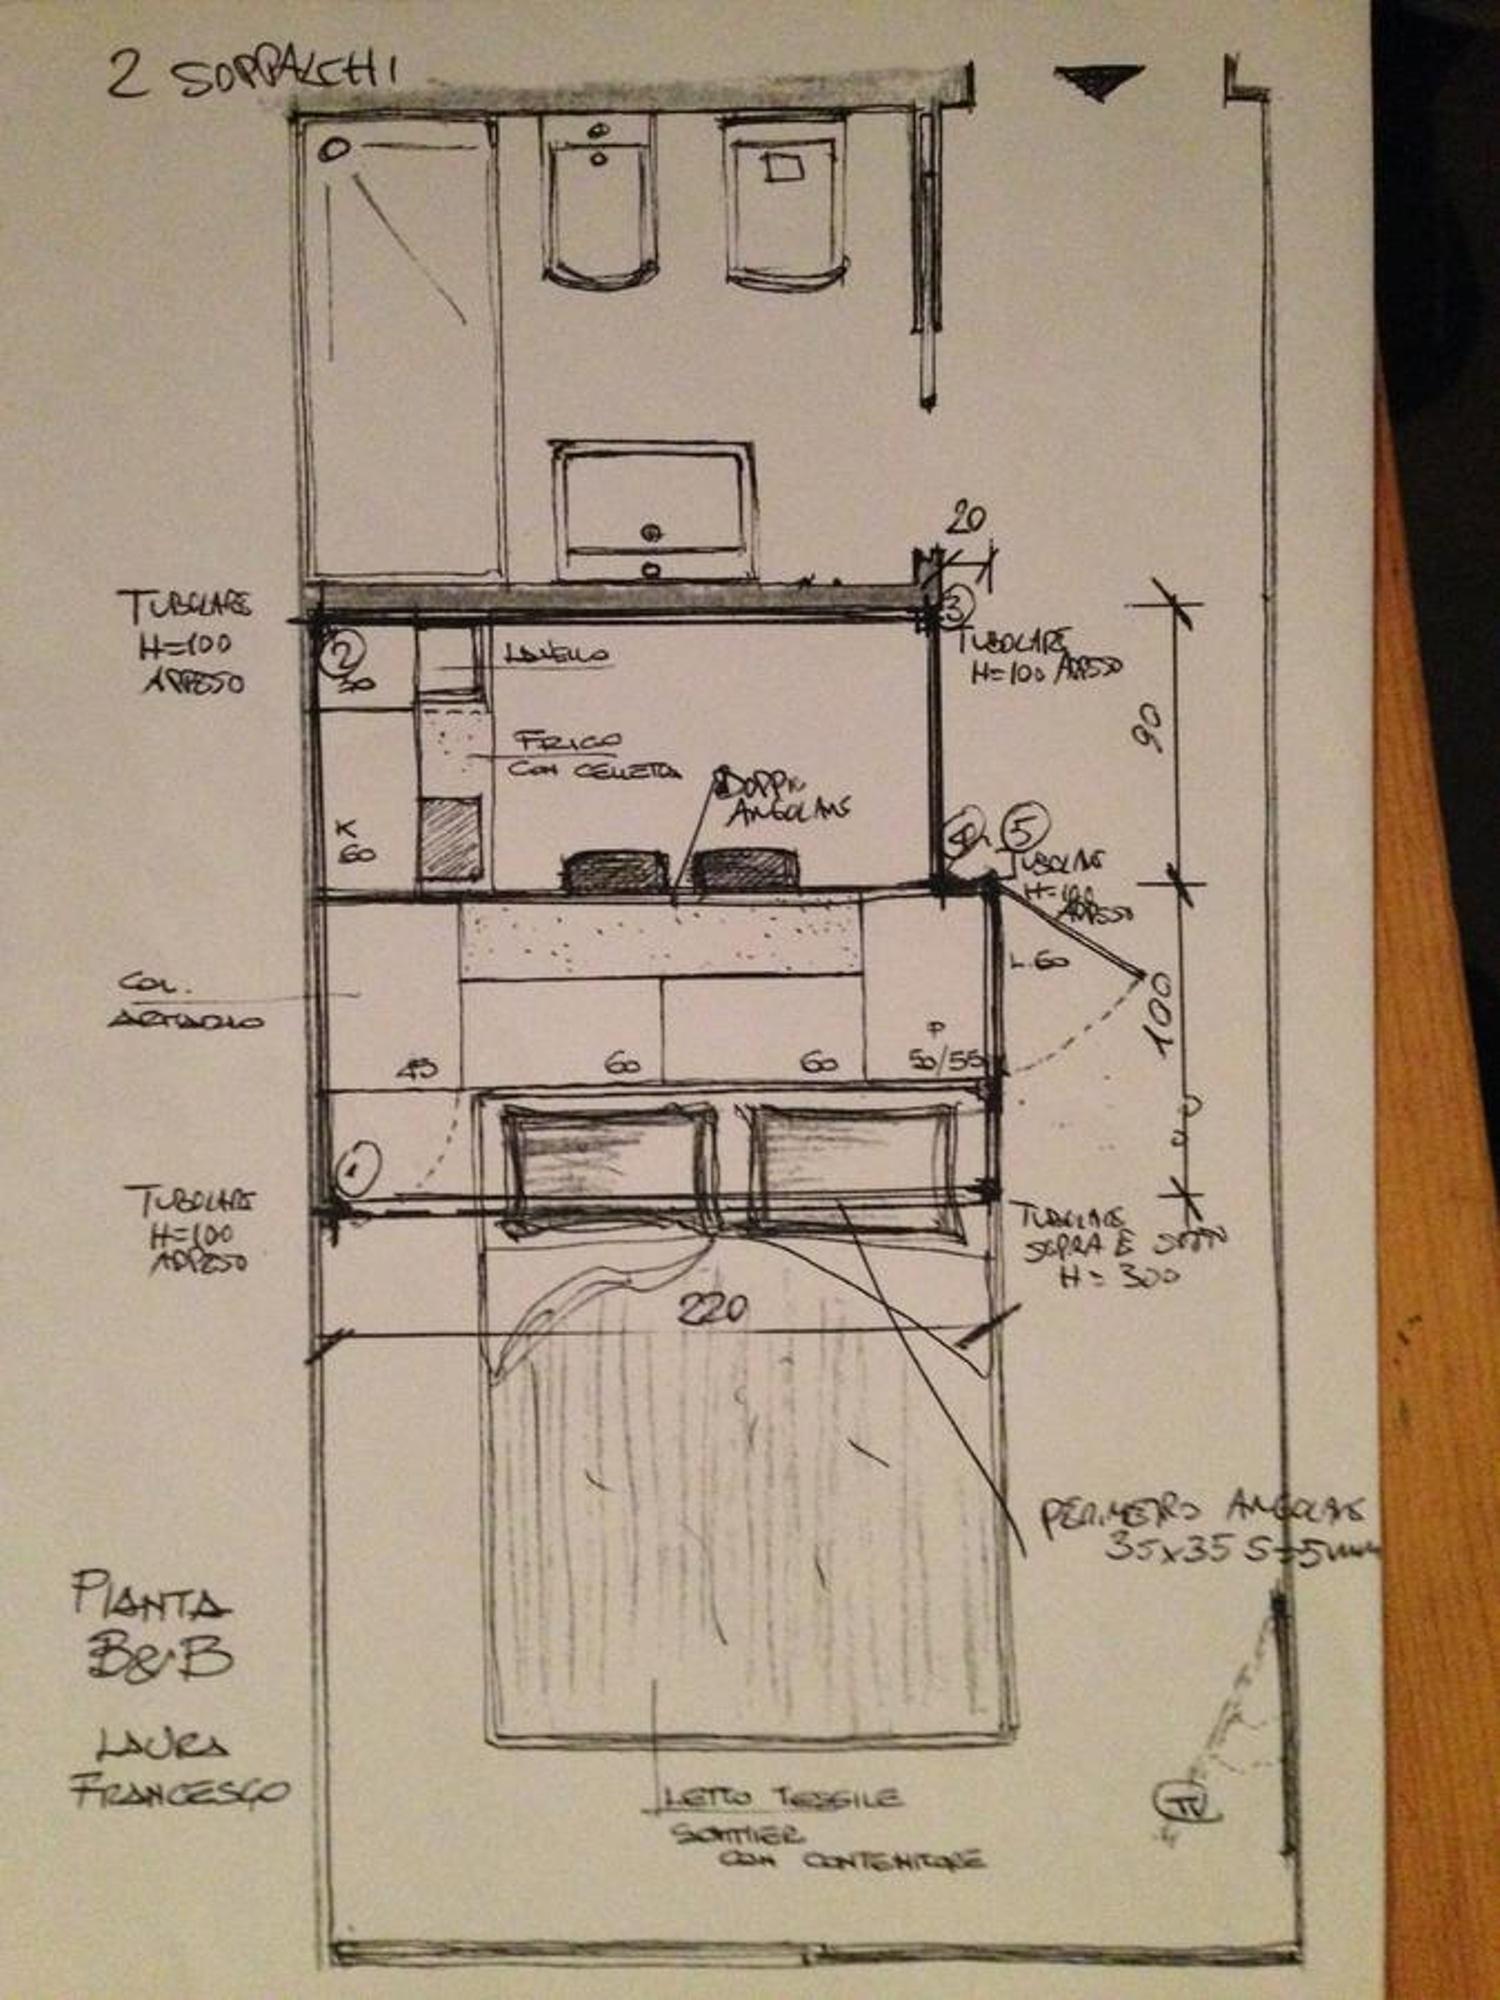 2 SOPPALCHI
20
TUBOLARE
H=100
APPESO
2
30
LAVELLO
3
TUBOLARE
H=100 APPESO
FRIGO
CON CELLETTA
90
DOPPIO
ANGOLARE
K
60
4
5
TUBOLARE
H=100
APPESO
L.60
COL.
100
45
60
60
P
50/55
1
TUBOLARE
H=100
APPESO
TUBOLARE
SOPRA E SOTTO
H=300
220
PERIMETRO ANGOLARE
35x35 S=5mm
PIANTA
B&B
LAURA
FRANCESCO
TV
LETTO TESSILE
SOMMIER
CON CONTENITORE